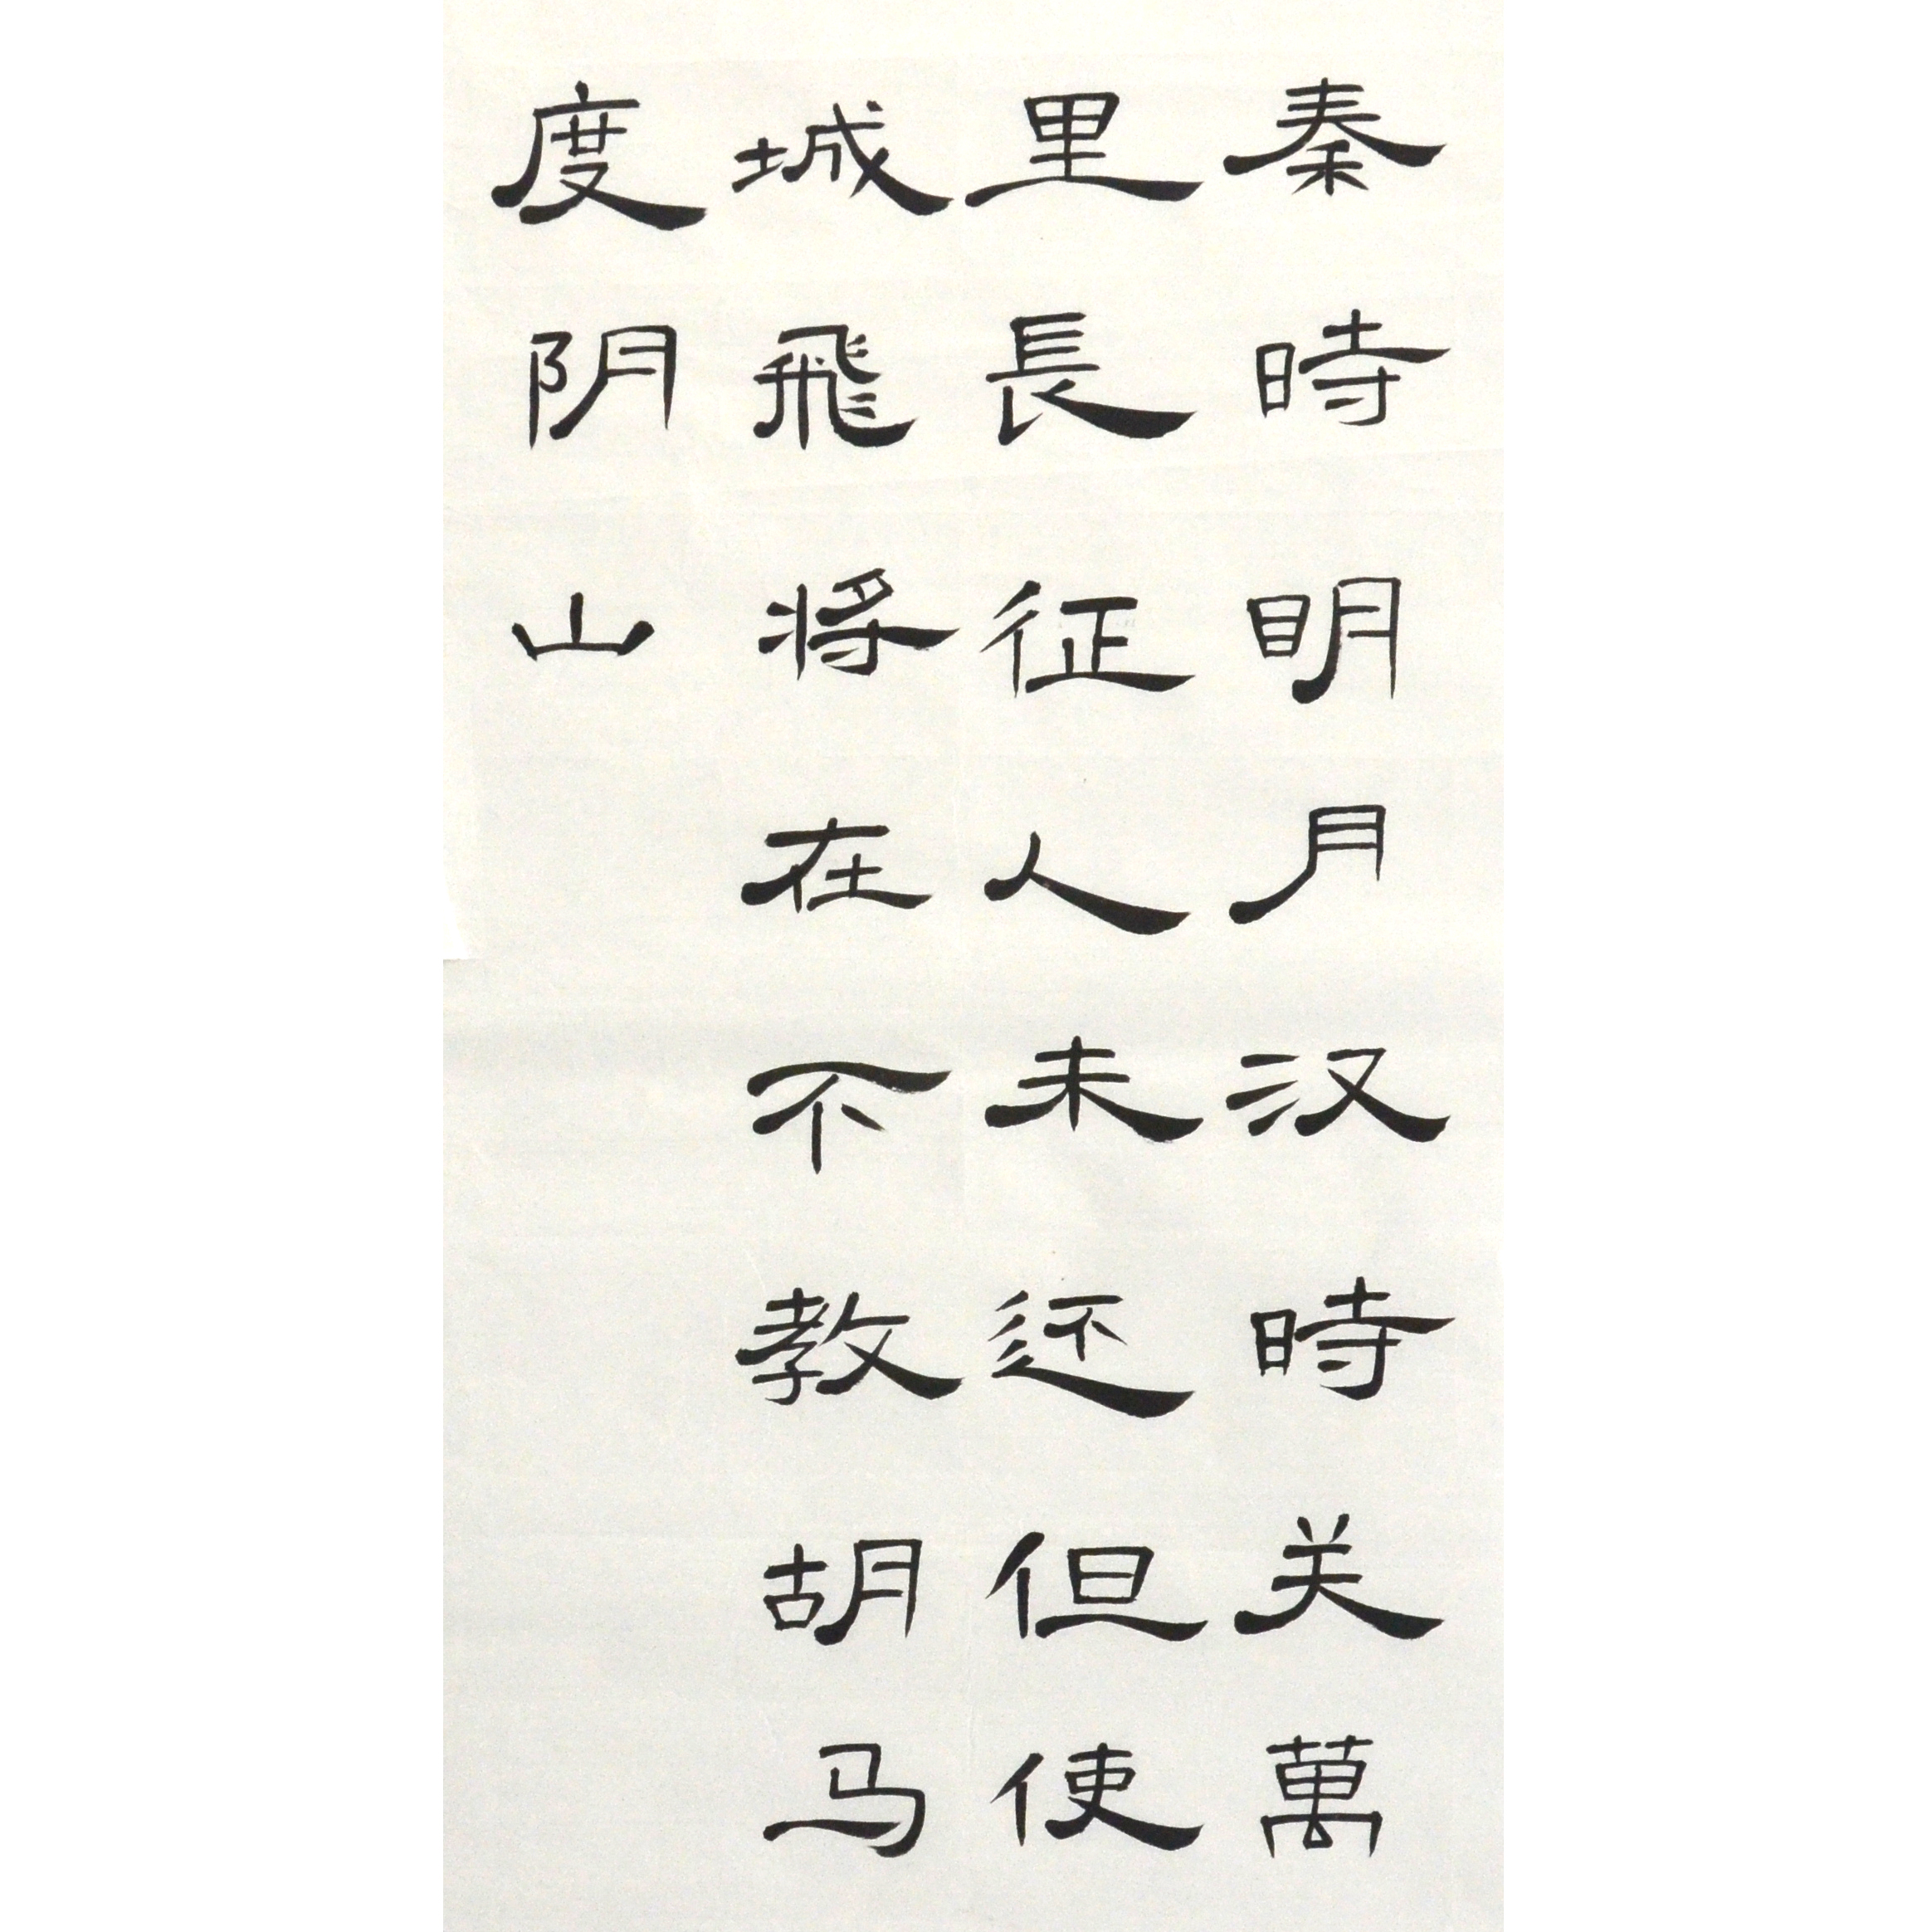 秦時明月汉時关萬
里長征人未还但使
城飛将在不教胡马
度阴山